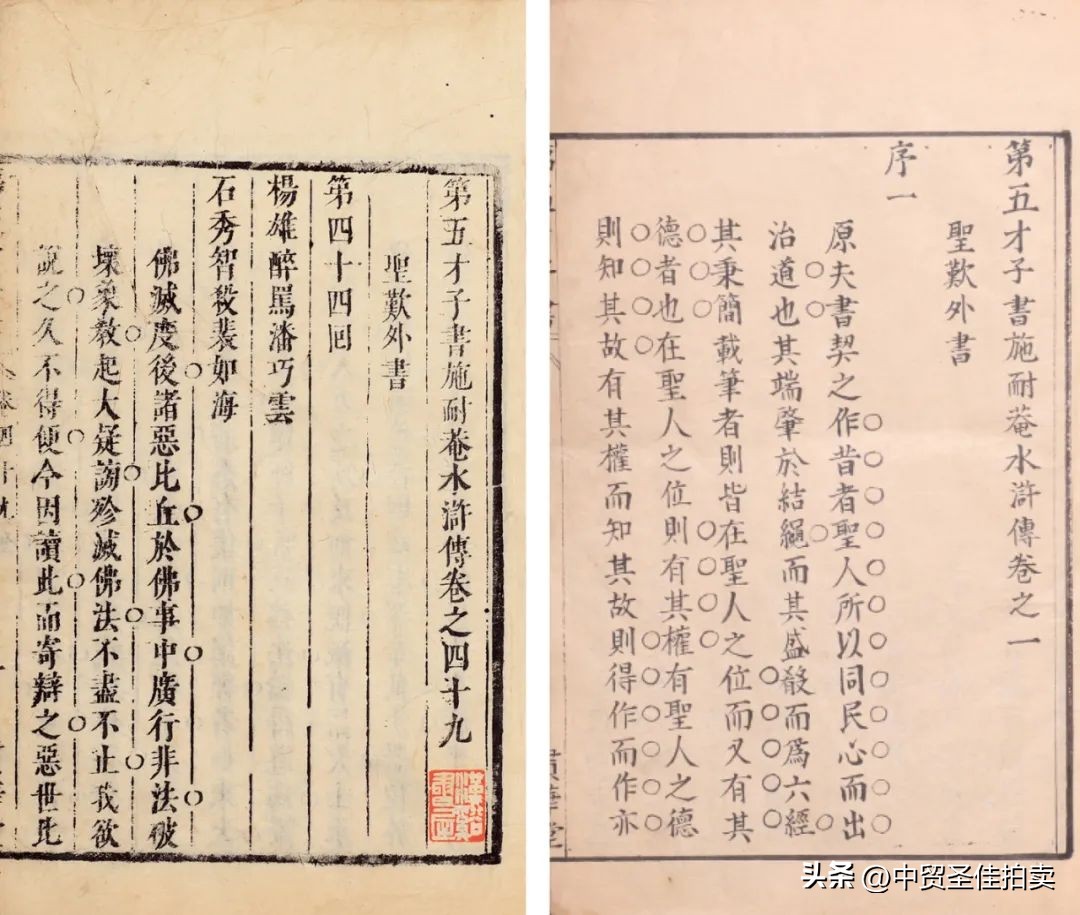 第五才子書施耐菴水滸傳卷之四十九
聖歎外書
第四十四回
楊雄醉罵潘巧雲
石秀智殺裴如海
佛滅度後諸惡比丘於佛事中廣行非法破
壞象教起大疑謗殄滅佛法不盡不止我欲
說之久不得便今因讀此而寄辯之惡世比
第五才子書施耐菴水滸傳卷之一
聖歎外書
序一
原夫書契之作昔者聖人所以同民心而出
治道也其端肇於結繩而其盛殽而為六經
其秉簡載筆者則皆在聖人之位而又有其
德者也在聖人之位則有其權有聖人之德
則知其故有其權而知其故則得作而作亦
貫華堂
头条 @中贸圣佳拍卖